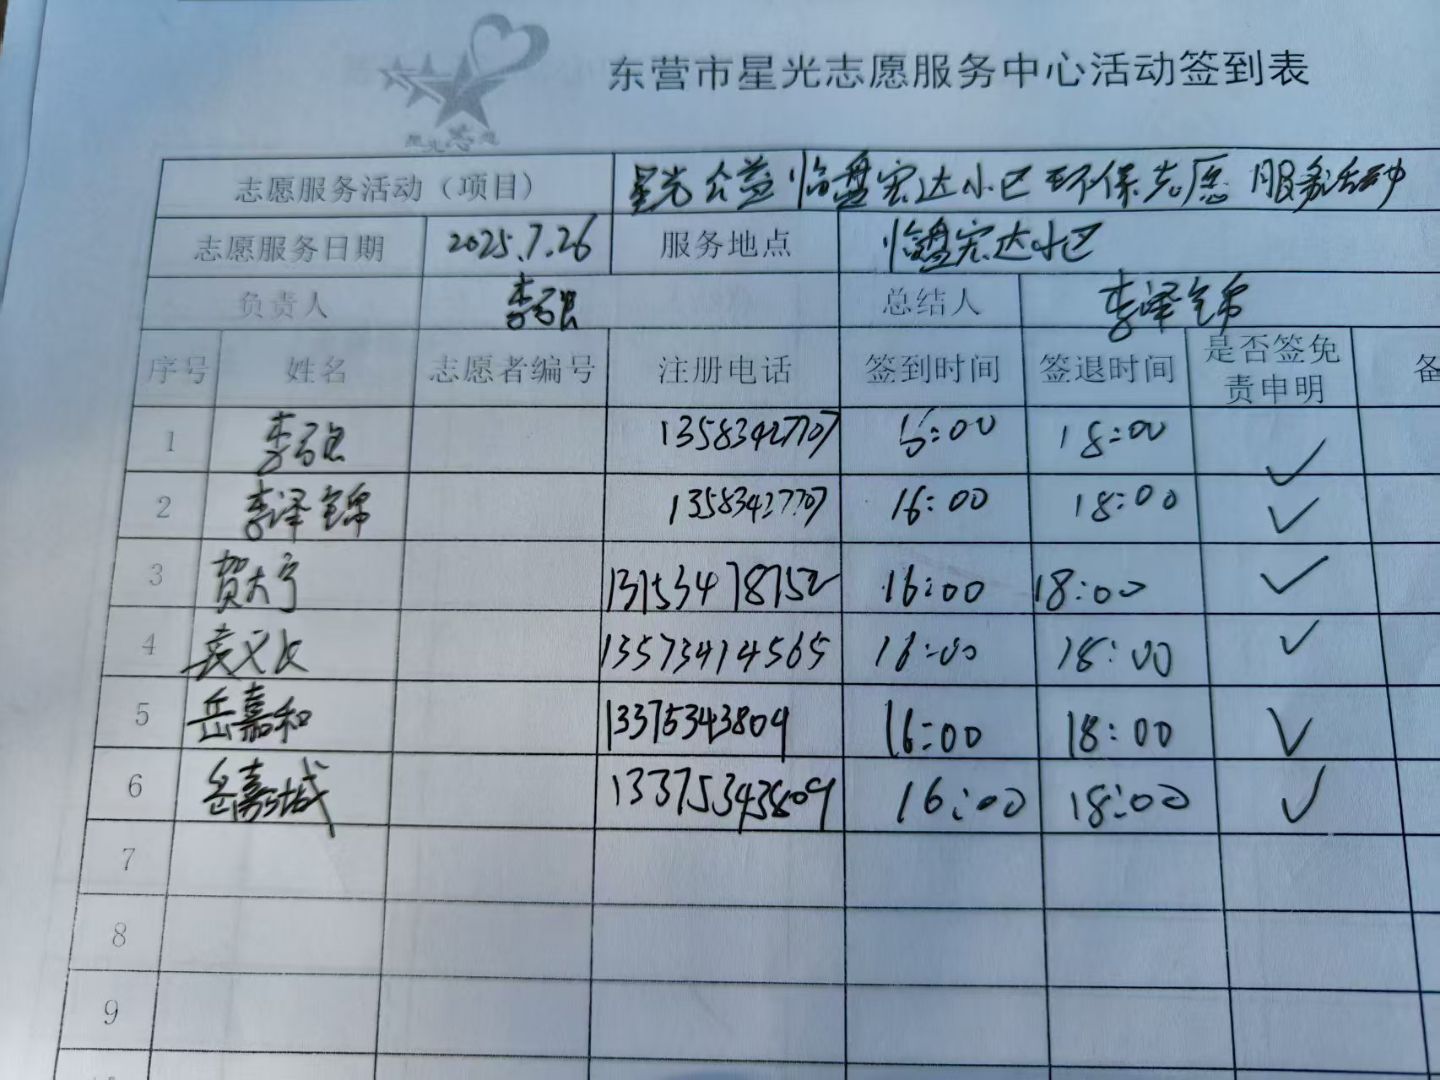 星光志愿
东营市星光志愿服务中心活动签到表
志愿服务活动（项目） 星光公益临盘宏达小区环保志愿服务活动
志愿服务日期 2025.7.26 服务地点 临盘宏达小区
负责人 李 总结人 李泽锦
序号 姓名 志愿者编号 注册电话 签到时间 签退时间 是否签免责申明 备
1 李 13583427707 16:00 18:00 ✓
2 李泽锦 13583427707 16:00 18:00 ✓
3 贺大宁 13153478752 16:00 18:00 ✓
4 13573414565 16:00 18:00 ✓
5 岳嘉和 13375343809 16:00 18:00 ✓
6 岳嘉城 13375343809 16:00 18:00 ✓
7
8
9